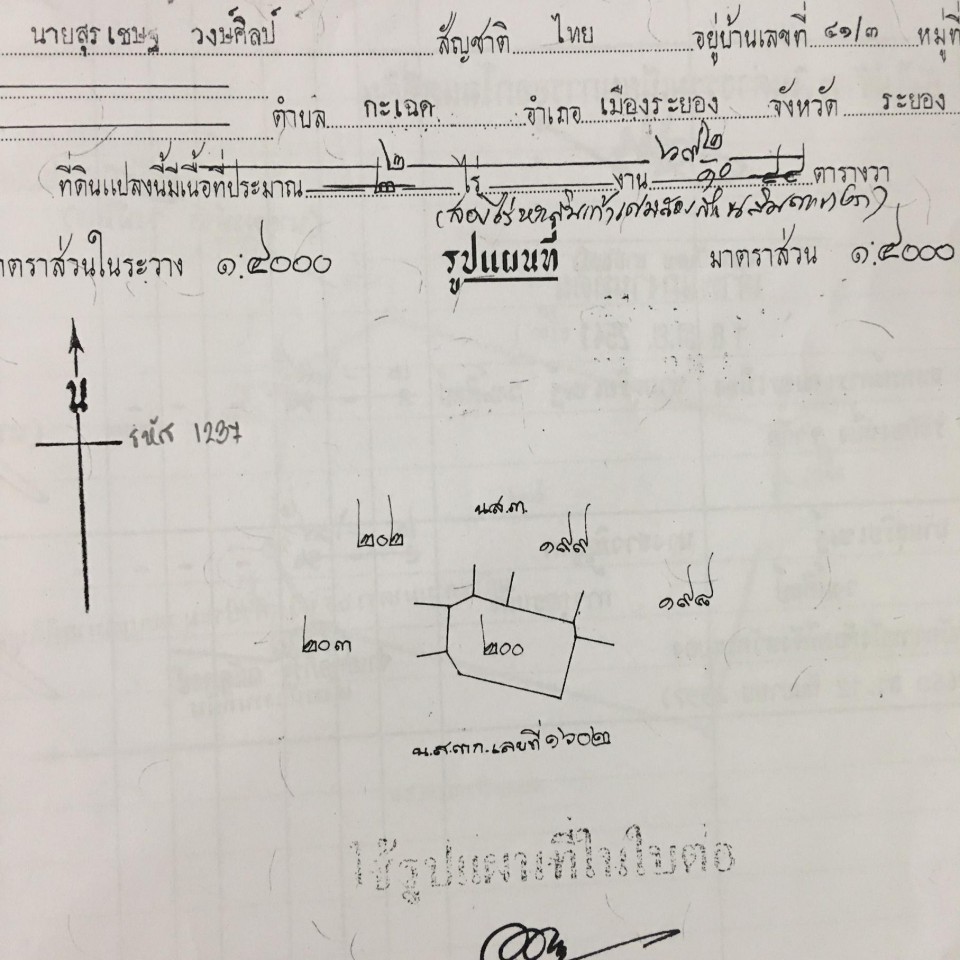 นายสุรเชษฐ วงษ์ศิลป์ สัญชาติ ไทย อยู่บ้านเลขที่ ๔๑/๓ หมู่ที่
ตำบล กะเฉด อำเภอ เมืองระยอง จังหวัด ระยอง
๒
ที่ดินแปลงนี้มีเนื้อที่ประมาณ ไร่ งาน ตารางวา
มาตราส่วนในระวาง ๑:๔๐๐๐ รูปแผนที่ มาตราส่วน ๑:๔๐๐๐
น
รหัส 1237
น.ส.๓.
๒๐๒ ๑๙๙
๑๙๘
๒๐๓ ๒๐๐
น.ส.๓ก.เลขที่ ๑๖๐๒
ใช้รูปแผนที่ในใบต่อ